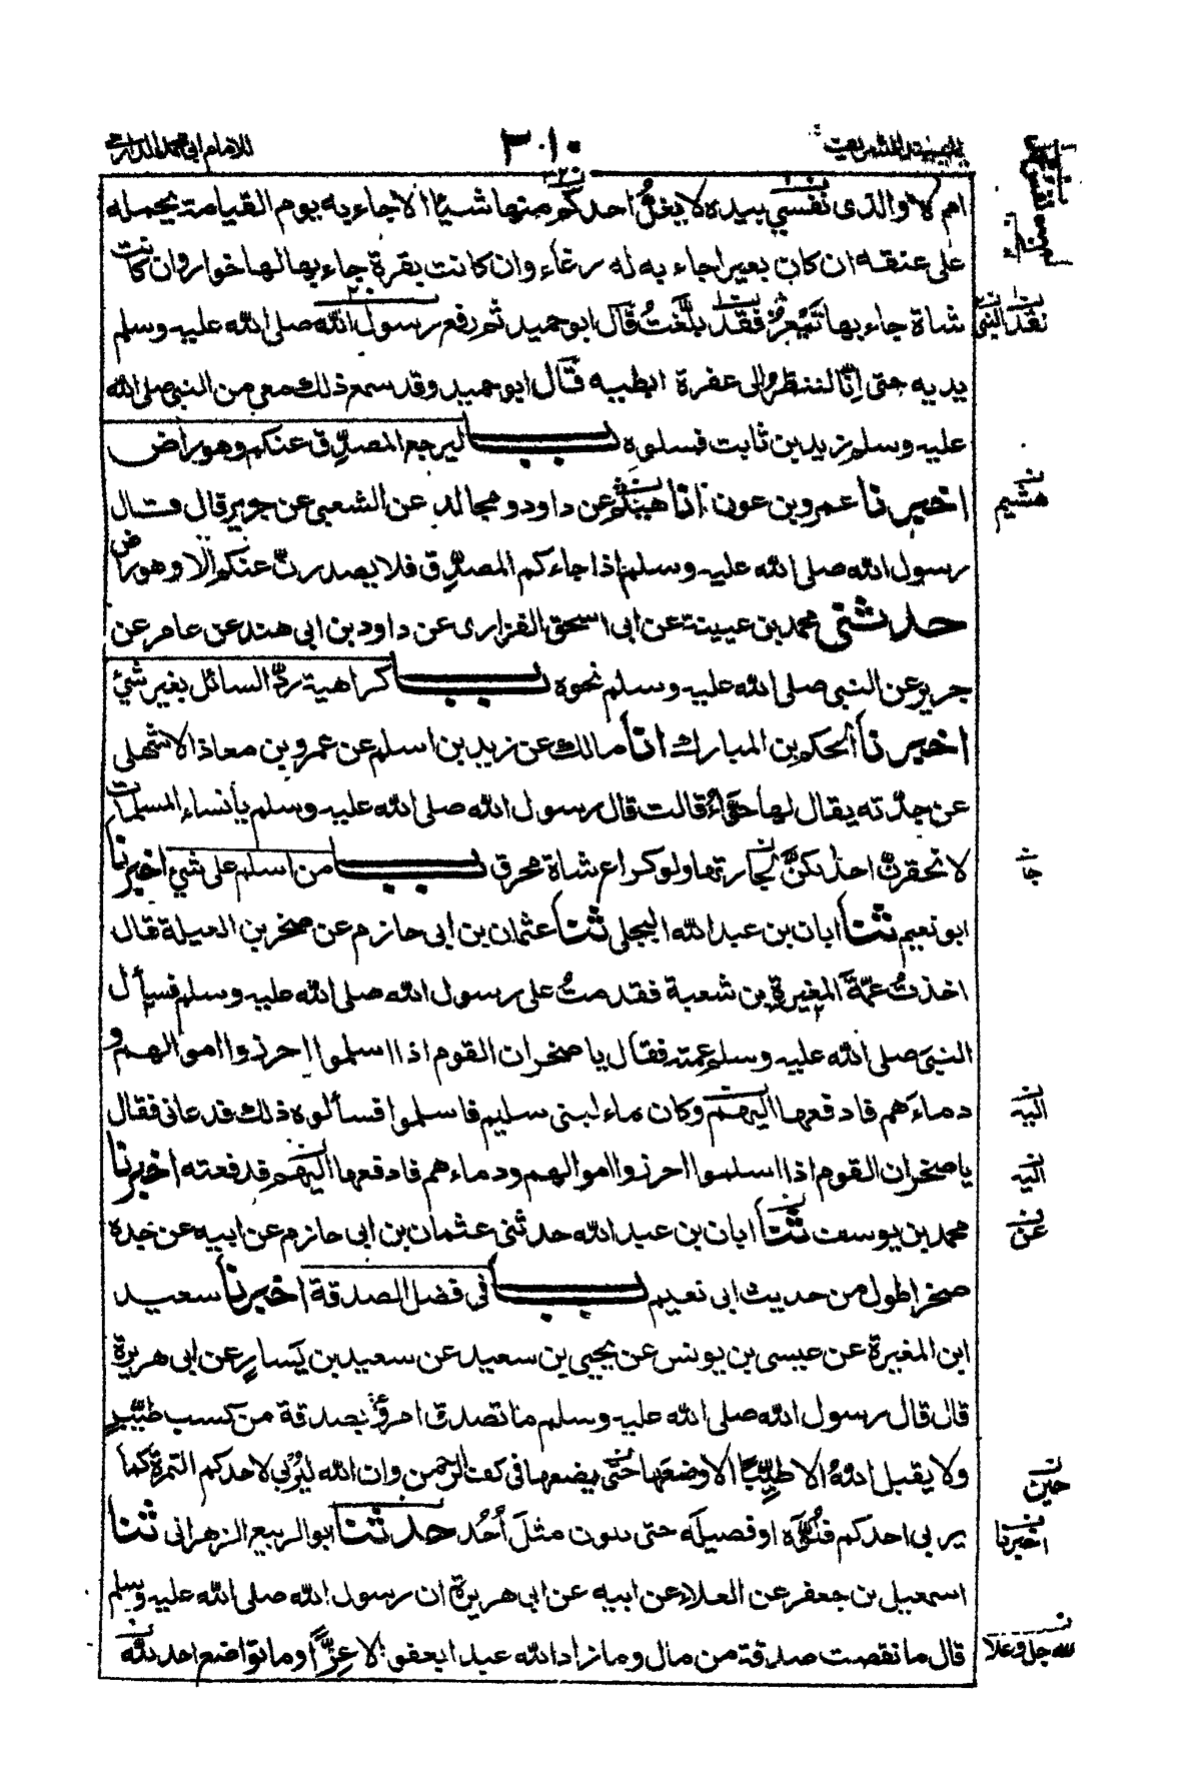 للامام ابي محمد الدارمي
ام لا والذى نفسي بيده لا يغلّ احدكم منها شيئا الا جاء به يوم القيامة يحمله
على عنقه ان كان بعيرا جاء به له رغاء وان كانت بقرة جاء بها لها خوار وان كانت
شاة جاء بها تَيْعَرُ فقد بلّغتُ قال ابو حميد ثم رفع رسول الله صلى الله عليه وسلم
يديه حتى اِنّا لننظر الى عفرة ابطيه قال ابو حميد وقد سمع ذلك معي من النبي صلى الله
عليه وسلم زيد بن ثابت فسلوه باب ليرجع المصدّق عنكم وهو راض
اخبرنا عمرو بن عون انا هشيم عن داود و مجالد عن الشعبي عن جرير قال قال
رسول الله صلى الله عليه وسلم اذا جاءكم المصدّق فلا يصدرنّ عنكم الا وهو راض
حدثني محمد بن عيينة عن ابى اسحق الفزارى عن داود بن ابى هند عن عامر عن
جرير عن النبي صلى الله عليه وسلم نحوه باب كراهية ردّ السائل بغير شئ
اخبرنا الحكم بن المبارك انا مالك عن زيد بن اسلم عن عمرو بن معاذ الاشهلى
عن جدّته يقال لها حوّاءُ قالت قال رسول الله صلى الله عليه وسلم يا نساء المسلمات
لا تحقرنّ احداكنّ لجارتها ولو كراع شاة محرق باب من اسلم على شئ اخبرنا
ابو نعيم ثنا ابان بن عبد الله البجلى ثنا عثمان بن ابى حازم عن صخر بن العيلة قال
اخذتُ عمّةَ المغيرة بن شعبة فقدمتُ على رسول الله صلى الله عليه وسلم فسأل
النبيَ صلى الله عليه وسلم عمته فقال يا صخر ان القوم اذا اسلموا احرزوا اموالهم و
دماءَهم فادفعها اليهم وكان ماء لبنى سليم فاسلموا فسألوه ذلك فدعانى فقال
يا صخر ان القوم اذا اسلموا احرزوا اموالهم ودماءهم فادفعها اليهم فدفعته اخبرنا
محمد بن يوسف ثنا ابان بن عبد الله حدثنى عثمان بن ابى حازم عن ابيه عن جده
صخر اطول من حديث ابى نعيم باب فى فضل الصدقة اخبرنا سعيد
ابن المغيرة عن عيسى بن يونس عن يحيى بن سعيد عن سعيد بن يَسارٍ عن ابى هريرة
قال قال رسول الله صلى الله عليه وسلم ما تصدق امرؤ بصدقة من كسب طيّبٍ
ولا يقبل اللهُ الا طيّبًا الا وضعها حتى يضعها فى كف الرحمن وان الله ليُرَبى لاحدكم التمرة كما
يربى احدكم فلُوّه او فصيلَه حتى تكون مثلَ اُحُد حدثنا ابو الربيع الزهرانى ثنا
اسمعيل بن جعفر عن العلاء عن ابيه عن ابى هريرة ان رسول الله صلى الله عليه وسلم
قال ما نقصت صدقة من مال وما زاد الله عبدا بعفو الا عِزًّا وما تواضع احد لله
نقد النبي
هشيم
جا
اليه
اليه
عن
حين
اخبرنا
لله جل وعلا